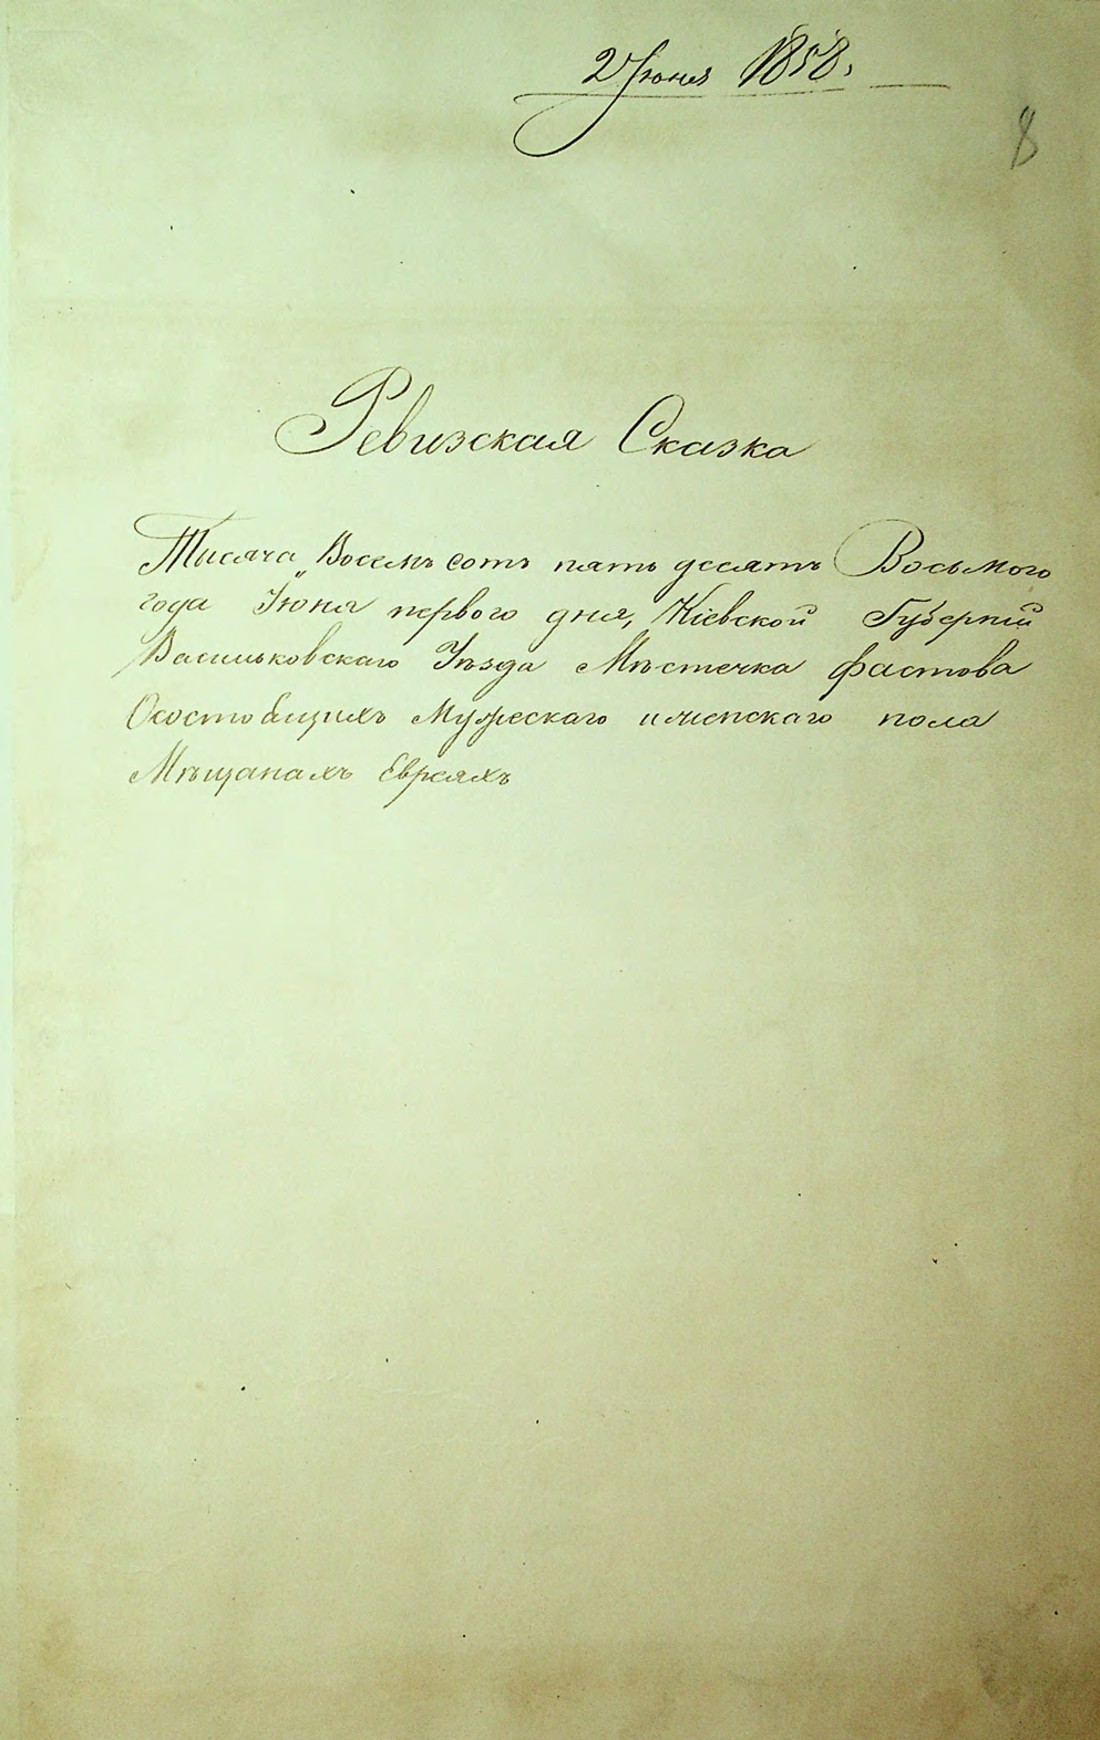 2 Іюня 1858.
8
Ревизская Сказка
Тисяча Восемъ сотъ пять десятъ Восьмого
года Іюня первого дня, Кіевской Губерніи
Васильковскаго Уѣзда Мѣстечка Фастова
О состоящихъ Мужескаго и женскаго пола
Мѣщанахъ Евреяхъ